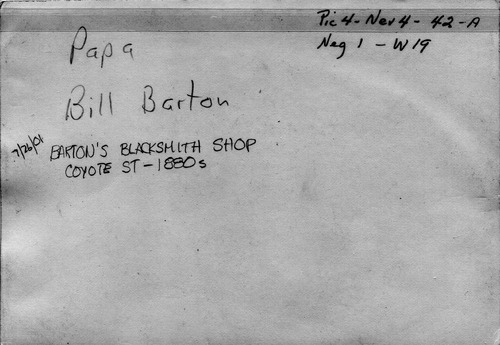 Pic 4 - Nev 4 - 42 - A
Neg 1 - W19
Papa
Bill Barton
7/26/01
BARTON'S BLACKSMITH SHOP
COYOTE ST - 1880s